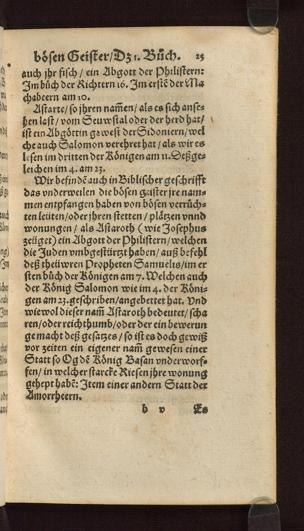 bösen Geister/Dz 1. Bůch. 25
auch jhr fisch / ein Abgott der Philistern:
Jm bůch der Richtern 16. Jm erstē der Ma
chabeern am 10.
Astarte/ so jhren nam̃en/ als es sich anse-
hen last/ vom Seuwstal oder der herd hat/
ist ein Abgöttin gewest der Sidoniern/ wel
che auch Salomon verehret hat/ als wir es
lesen im dritten der Königen am 11. Deßge-
leichen im 4. am 23.
Wir befindē auch in Biblischer geschrifft
das vnderweilen die bösen geister jre nam-
men entpfangen haben von bösen verrůch-
ten leüten/ oder jhren stetten / plätzen vnnd
wonungen/ als Astaroth (wie Josephus
zeüget) ein Abgott der Philistern/ welchen
die Juden vmbgestürtzt haben/ auß befehl
deß theüwren Propheten Samuelis/ im er
sten bůch der Königen am 7. Welchen auch
der König Salomon wie im 4. der Köni-
gen am 23. geschriben/ angebettet hat. Vnd
wiewol dieser nam̃ Astaroth bedeutet/ scha
ren/ oder reichthumb/ oder der ein bewerun
ge macht deß gesatzes/ so ist es doch gewiß
vor zeiten ein eigener nam̃ gewesen einer
Statt so Og dē König Basan vnderworf-
fen/ in welcher starcke Riesen jhre wonung
gehept habē: Jtem einer andern Statt der
Amorrheern.
b v Es